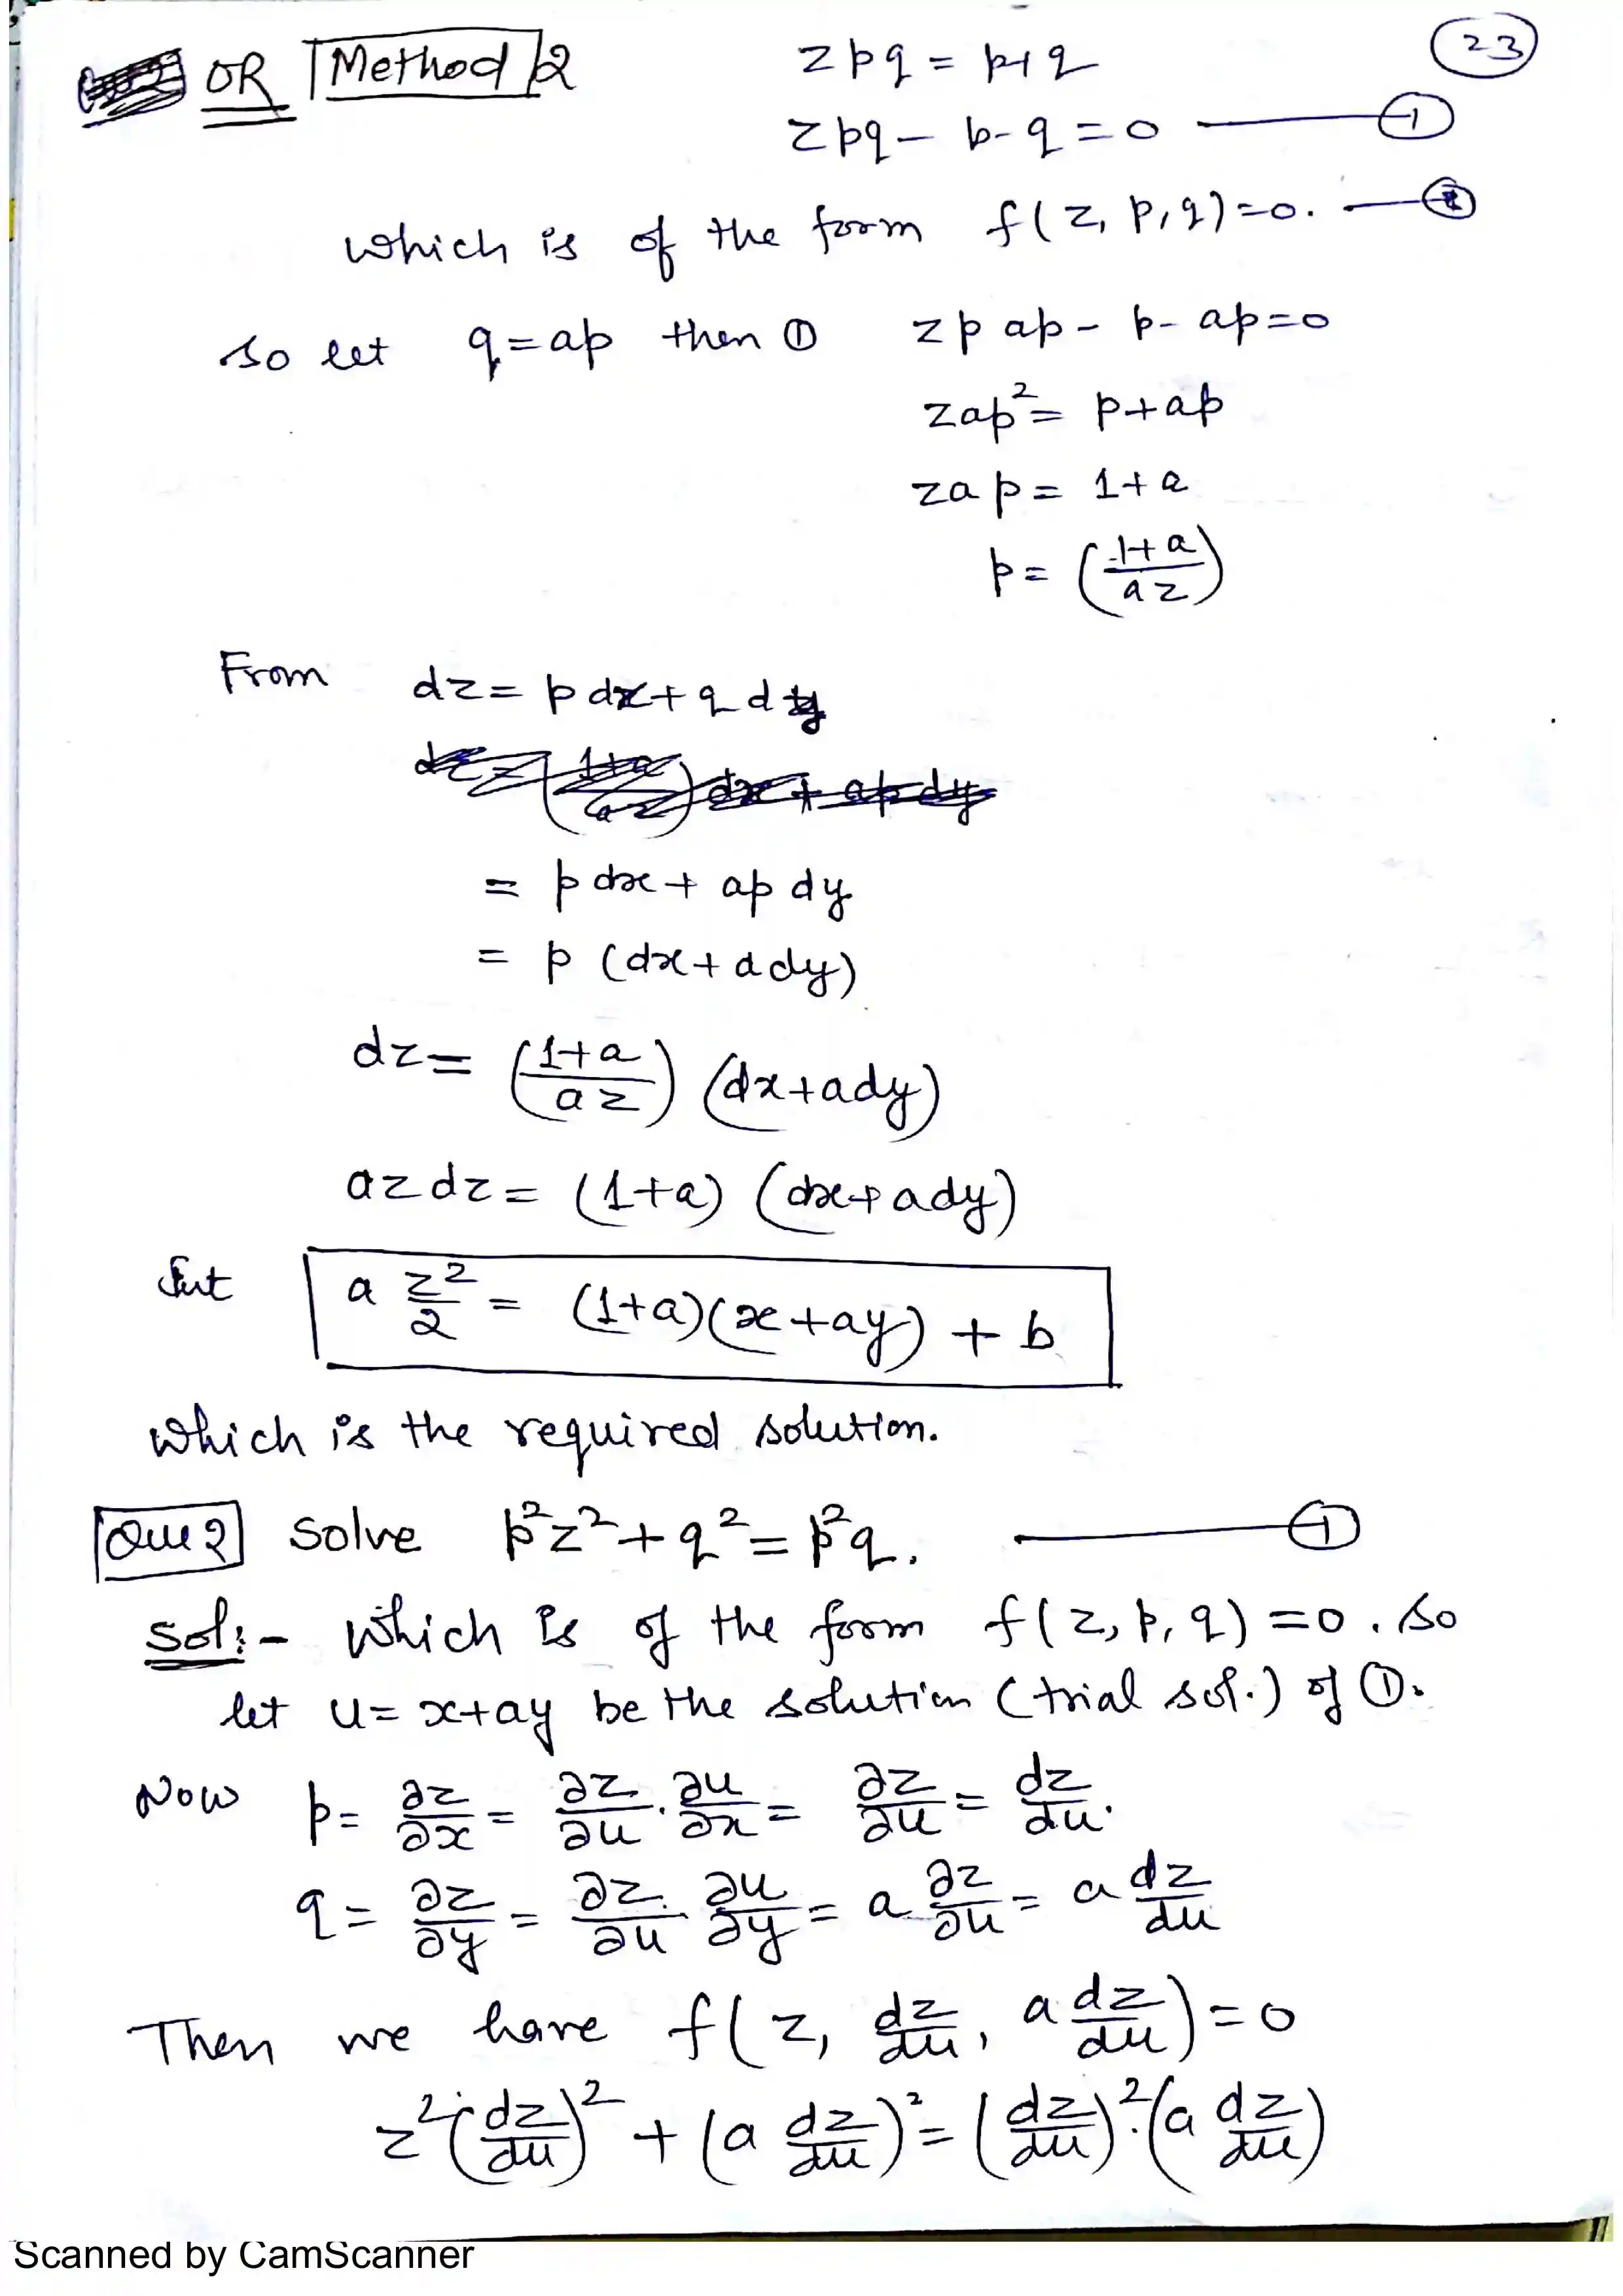 OR Method 2 zpq = p+q 23
zpq - p - q = 0 —— 1
which is of the form f(z, p, q) = 0. ——
so let q = ap then ① z p ap - p - ap = 0
zap² = p + ap
zap = 1 + a
p = ((1+a)/(az))
From dz = p dx + q dy
= p dx + ap dy
= p (dx + a dy)
dz = ((1+a)/(az)) (dx + ady)
az dz = (1+a) (dx + ady)
a z²/2 = (1+a)(x+ay) + b
which is the required solution.
Que 2 Solve p²z² + q² = p²q. —— 1
Sol:- which is of the form f(z, p, q) = 0. so
let u = x+ay be the solution (trial sol.) of ①.
Now p = ∂z/∂x = ∂z/∂u · ∂u/∂x = ∂z/∂u = dz/du.
q = ∂z/∂y = ∂z/∂u · ∂u/∂y = a ∂z/∂u = a dz/du
Then we have f(z, dz/du, a dz/du) = 0
z² (dz/du)² + (a dz/du)² = (dz/du)² · (a dz/du)
Scanned by CamScanner